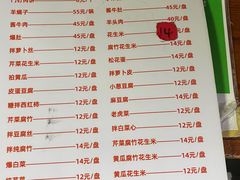 羊蝎子 55元/锅
酱牛肉 45元/盘
爆肚 45元/盘
拌萝卜丝 12元/盘
芹菜花生米 12元/盘
拍黄瓜 12元/盘
皮蛋豆腐 12元/盘
糖拌西红柿 12元/盘
芹菜腐竹 12元/盘
拌豆腐丝 12元/盘
拌炝腐竹 14元/盘
爆白菜 14元/盘
12元/盘
酱牛肚 45元/盘
羊头肉 40元/盘
花生米 14
腐竹花生米
松花蛋 12元/盘
拌萝卜皮 12元/盘
小葱豆腐 12元/盘
麻豆腐 12元/盘
老虎菜 12元/盘
拌白菜心 12元/盘
芹菜腐竹花生米 12元/盘
黄瓜腐竹花生米 12元/盘
黄瓜腐竹 14元/盘
黄瓜花生米 12元/盘